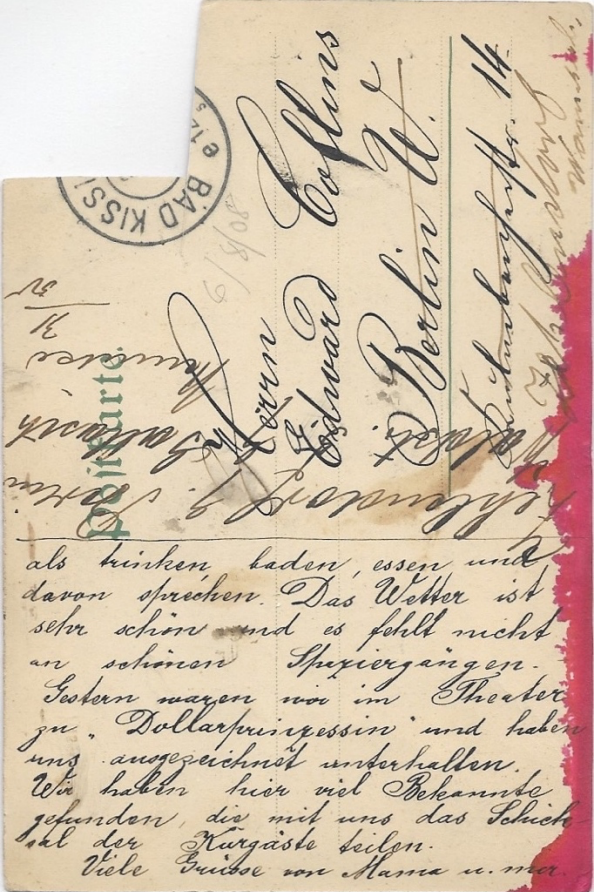 Postkarte.
BAD KISSI
6/8/08
Herrn
Edward Collins
Berlin W.
14.
Zehlendorf
als trinken baden, essen und
davon sprechen. Das Wetter ist
sehr schön und es fehlt nicht
an schönen Spaziergängen.
Gestern waren wir im Theater
zu „Dollarprinzessin" und haben
uns ausgezeichnet unterhalten.
Wir haben hier viel Bekannte
gefunden, die mit uns das Schick-
sal der Kurgäste teilen.
Viele Grüsse von Mama u. mir.